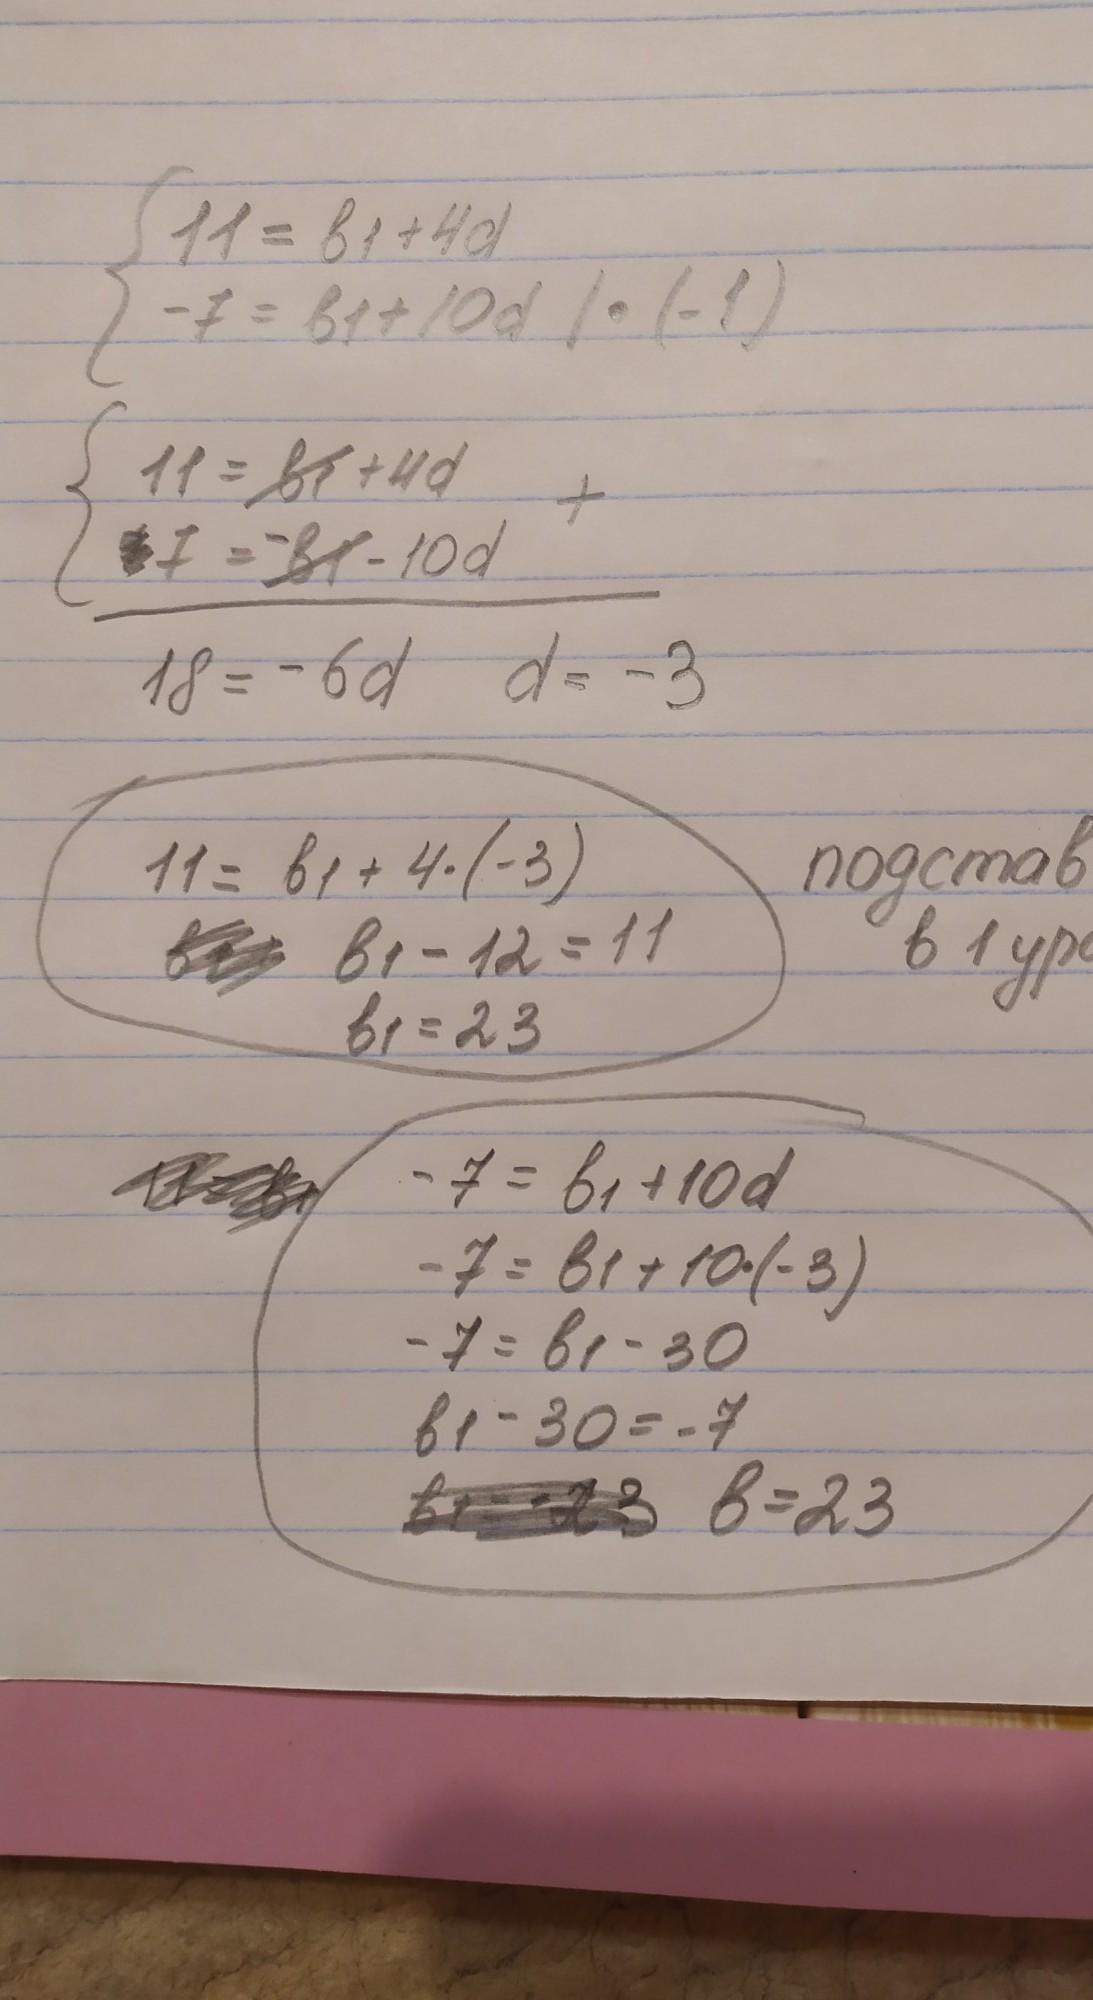 11 = в1 + 4d
-7 = в1 + 10d | • (-1)
11 = в1 + 4d +
7 = -в1 - 10d
18 = -6d d = -3
11 = в1 + 4·(-3)
в1 - 12 = 11
в1 = 23
подстав
в 1 ура
-7 = в1 + 10d
-7 = в1 + 10·(-3)
-7 = в1 - 30
в1 - 30 = -7
в = 23